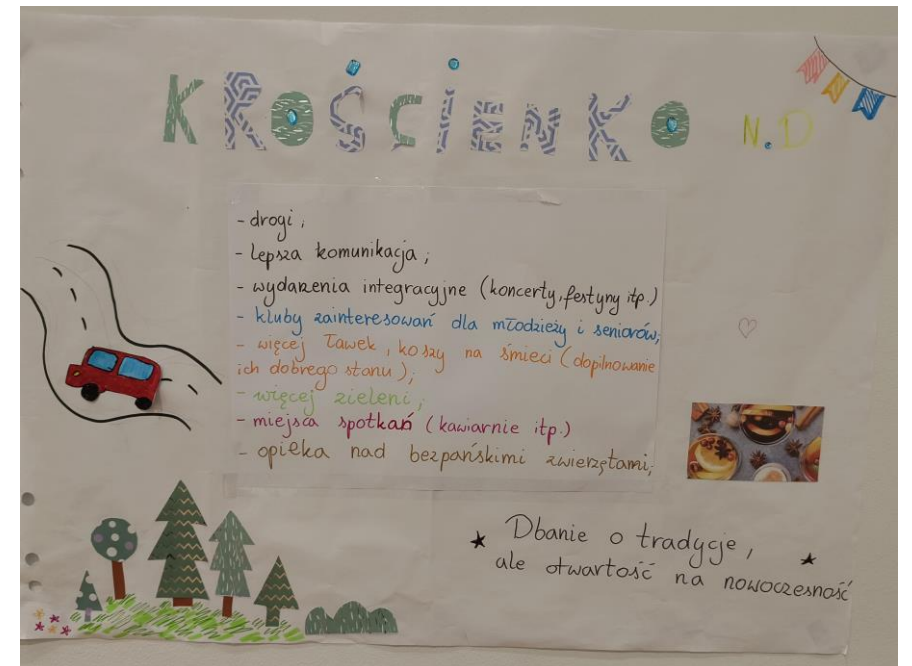 KROŚCIENKO N.D
- drogi,
- lepsza komunikacja;
- wydarzenia integracyjne (koncerty, festyny itp.)
- kluby zainteresowań dla młodzieży i seniorów;
- więcej ławek, koszy na śmieci (dopilnowanie
ich dobrego stanu);
- więcej zieleni;
- miejsca spotkań (kawiarnie itp.)
- opieka nad bezpańskimi zwierzętami;
Dbanie o tradycje,
ale otwartość na nowoczesność